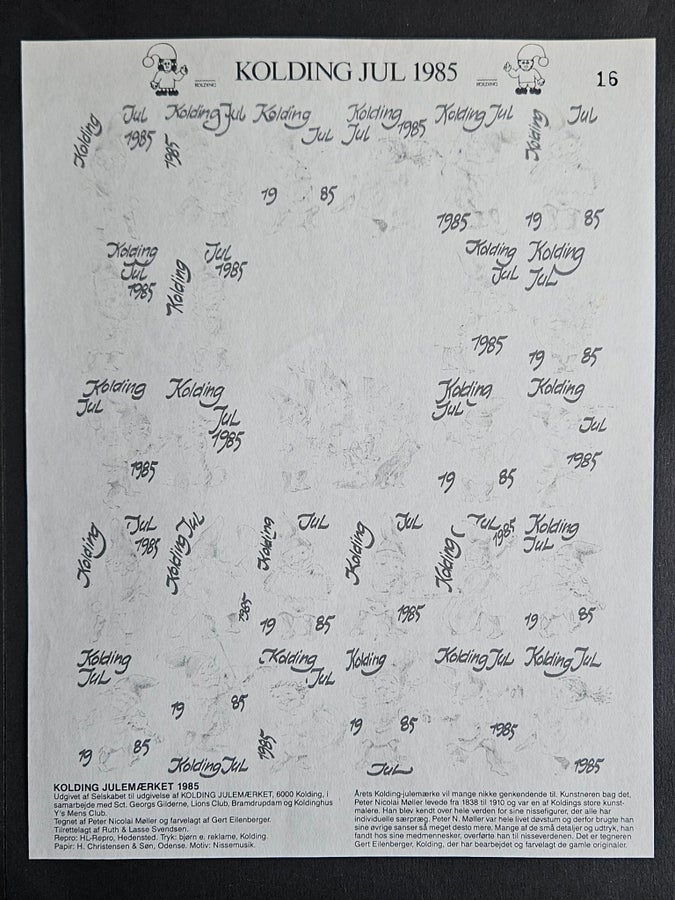 KOLDING
KOLDING JUL 1985
KOLDING
16
Kolding
Jul
1985
Kolding Jul
1985
Kolding
Jul
19 85
Kolding
Jul 1985
Kolding Jul
1985
Kolding
Jul
19 85
Kolding
Jul
1985
Kolding
Jul
1985
Kolding
Jul
1985
Kolding
Jul
19 85
Kolding
Jul
1985
Kolding
Jul
1985
Kolding
Jul
19 85
Kolding
Jul
1985
Kolding
Jul
1985
Kolding Jul
1985
Kolding
Jul
19 85
Kolding
Jul
1985
Kolding
Jul
1985
Kolding
Jul
19 85
Kolding
Jul
19 85
19 85
Kolding Jul
Kolding
Jul
1985
Kolding
19 85
Jul
Kolding Jul
1985
Kolding Jul
1985
KOLDING JULEMÆRKET 1985
Udgivet af Selskabet til udgivelse af KOLDING JULEMÆRKET, 6000 Kolding, i
samarbejde med Sct. Georgs Gilderne, Lions Club, Bramdrupdam og Koldinghus
Y's Mens Club.
Tegnet af Peter Nicolai Møller og farvelagt af Gert Eilenberger.
Tilrettelagt af Ruth & Lasse Svendsen.
Repro: HL-Repro, Hedensted. Tryk: bjørn e. reklame, Kolding.
Papir: H. Christensen & Søn, Odense. Motiv: Nissemusik.
Årets Kolding-julemærke vil mange nikke genkendende til. Kunstneren bag det,
Peter Nicolai Møller levede fra 1838 til 1910 og var en af Koldings store kunst-
malere. Han blev kendt over hele verden for sine nissefigurer, der alle har
individuelle særpræg. Peter N. Møller var hele livet døvstum og derfor brugte han
sine øvrige sanser så meget desto mere. Mange af de små detaljer og udtryk, han
fandt hos sine medmennesker, overførte han til nisseverdenen. Det er tegneren
Gert Eilenberger, Kolding, der har bearbejdet og farvelagt de gamle originaler.